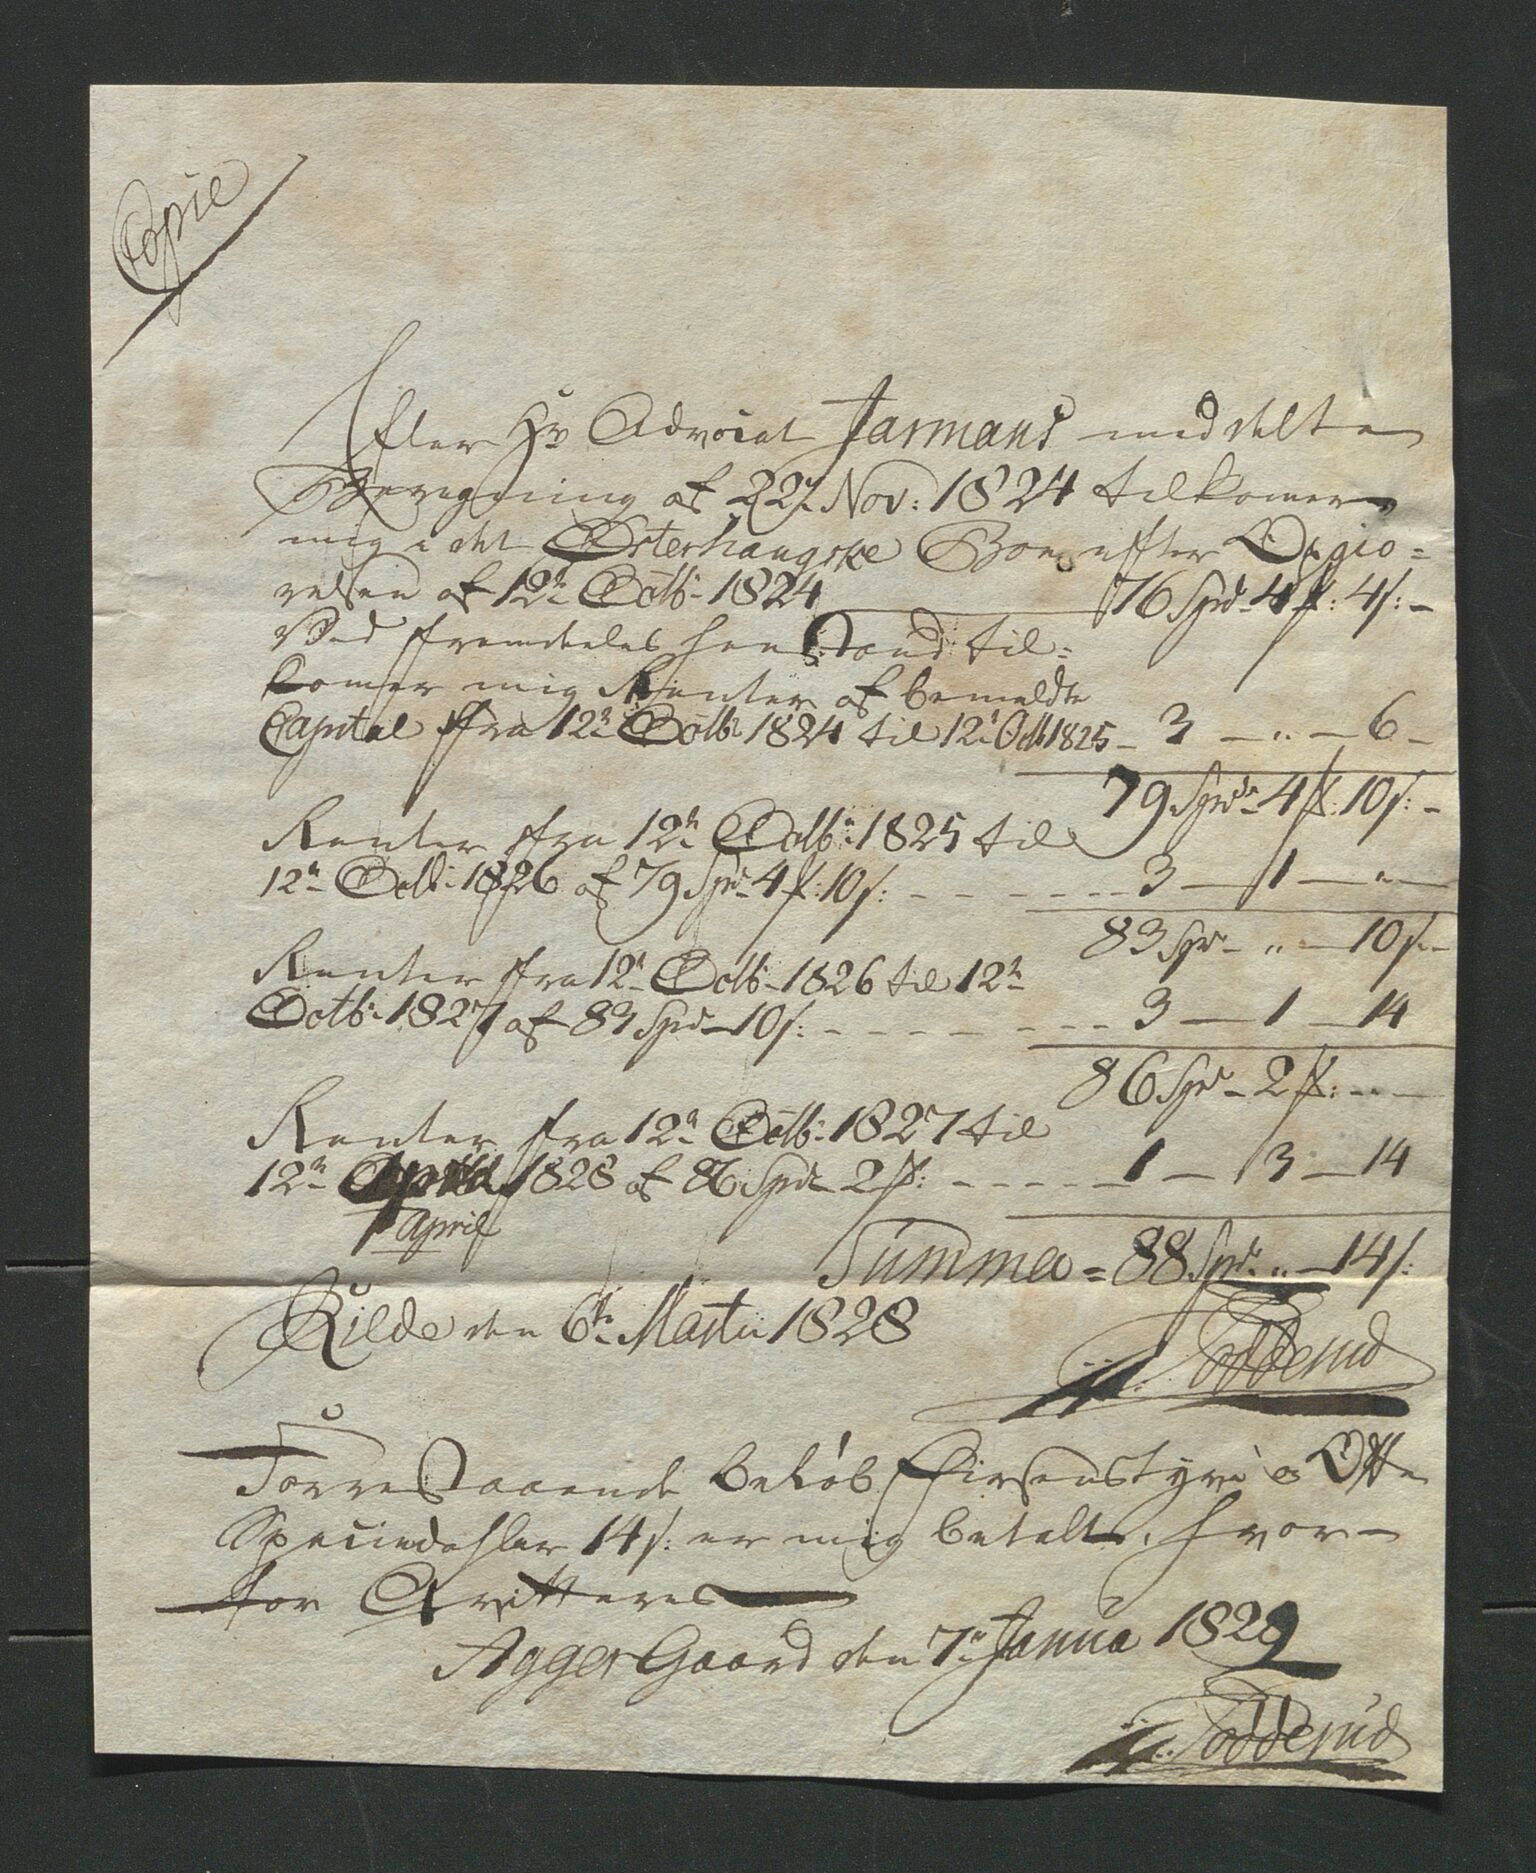 Copie
Efter Hr Advocat Jarmans meddelte
Beregning af 22. Nov: 1824 tilkomer
mig i det Østerhaugske Boe efter Opgiø=
relsen af 12te Octbr 1824 76 Spd 4 #: 4 s: –
Ved fremdeeles henstand til=
komer mig Renter af bemeldte
Capital fra 12te Octbr 1824 til 12te Octb 1825 – 3 – " – 6 –
79 Spd 4 #: 10 s: –
Renter fra 12te Octbr 1825 til
12te Octbr 1826 af 79 Spd 4 #: 10 s: – – – – 3 – 1 – "
83 Spd – " – 10 s. –
Renter fra 12te Octbr 1826 til 12te
Octbr 1827 af 83 Spd – 10 s: – – – – 3 – 1 – 14
86 Spd – 2 #: – " –
Renter fra 12te Octbr 1827 til
12te April 1828 af 86 Spd 2 #: – – – – 1 – 3 – 14
April
Summa = 88 Spd. " – 14 s:
Kilde den 6te Marti 1828
Fodderud
Forrestaaende beløb Firsenstyve og Otte
Speciedahler 14 s: er mig betalt, hvor–
for Qvitteres
AggerGaard den 7de Janua 1829
Fodderud